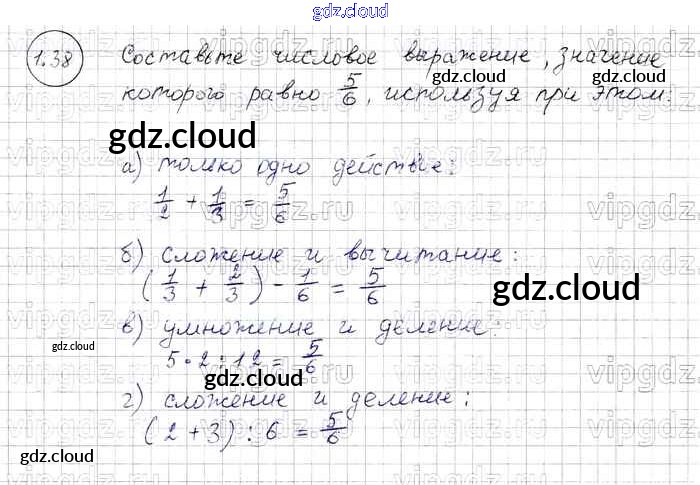 gdz.cloud
1.38 Составьте числовое выражение, значение
которого равно 5/6, используя при этом:
gdz.cloud gdz.cloud
gdz.cloud
а) только одно действие:
1/2 + 1/3 = 5/6
б) сложение и вычитание:
(1/3 + 2/3) - 1/6 = 5/6
gdz.cloud
в) умножение и деление:
gdz.cloud
5 · 2 : 12 = 5/6
gdz.cloud
г) сложение и деление:
(2 + 3) : 6 = 5/6
gdz.cloud gdz.cloud